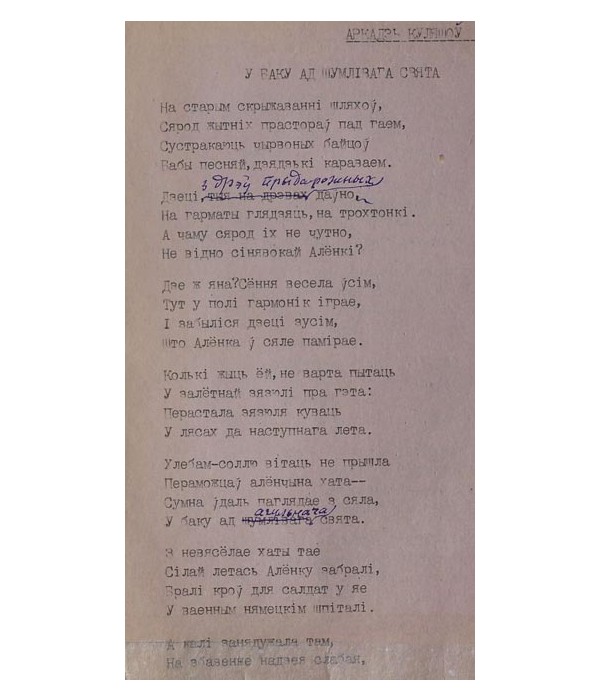 АРКАДЗЬ КУЛЯШОЎ
У БАКУ АД ШУМЛІВАГА СВЯТА
На старым скрыжаванні шляхоў,
Сярод жытніх прастораў пад гаем,
Сустракаюць чырвоных байцоў
Бабы песняй, дзядзькі караваем.
з дрэў прыдарожных
Дзеці, тыя на дрэвах даўно,
На гарматы глядзяць, на трохтонкі.
А чаму сярод іх не чутно,
Не відно сінявокай Алёнкі?
Дзе ж яна?Сёння весела ўсім,
Тут у полі гармонік іграе,
І забыліся дзеці зусім,
Што Алёнка ў сяле памірае.
Колькі жыць ёй, не варта пытаць
У залётнай зязюлі пра гэта:
Перастала зязюля куваць
У лясах да наступнага лета.
Хлебам-соллю вітаць не прышла
Пераможцаў алёнчына хата--
Сумна ўдаль паглядае з сяла,
агульнага
У баку ад шумлівага свята.
З невясёлае хаты тае
Сілай летась Алёнку забралі,
Бралі кроў для салдат у яе
У ваенным нямецкім шпіталі.
А калі занядужала там,
На збавенне надзея слабая,